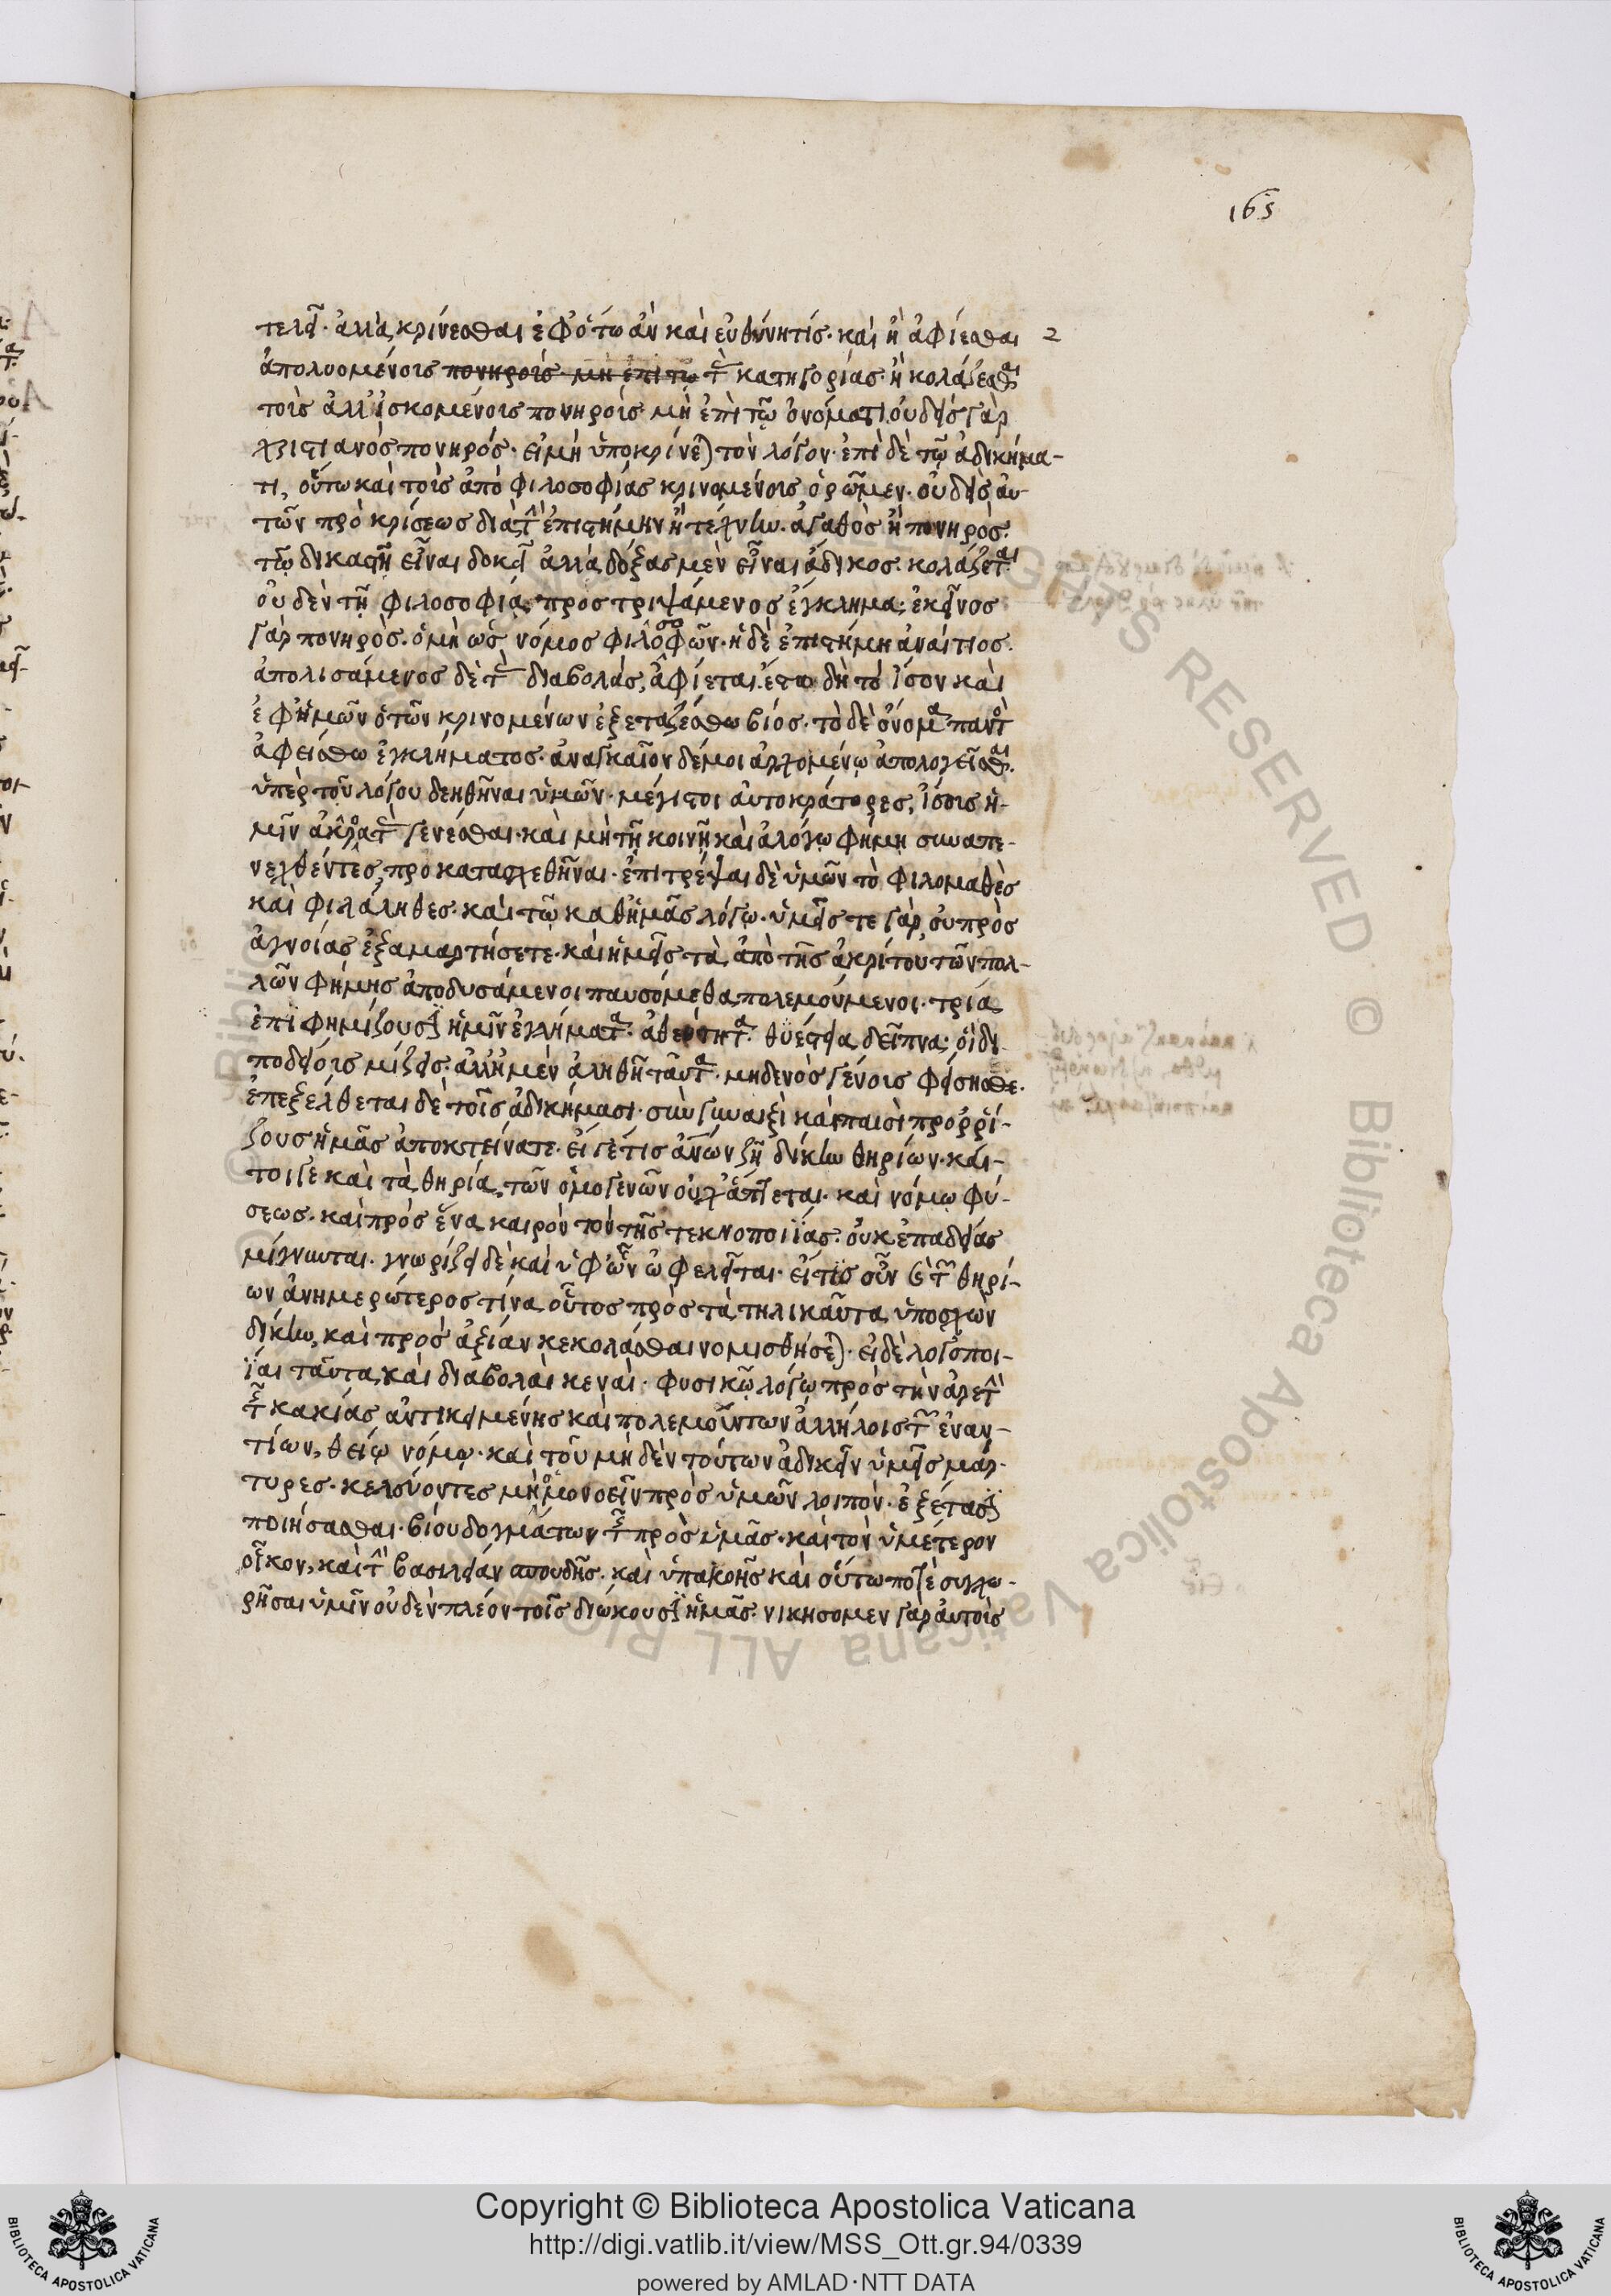 165
τελεῖ· ἀλλὰ κρίνεσθαι ἐφ' ὅτω ἂν καὶ εὐθύνητις· καὶ ἢ ἀφίεσθαι 2
ἀπολυομένοις πονηροῖς· μὴ ἐπὶ τῶ τὰς κατηγορίας· ἢ κολάζεσθαι
τοῖς ἁλλισκομένοις πονηροῖς μὴ ἐπὶ τῷ ὀνόματι. οὐδεὶς γὰρ
χριστιανὸς πονηρός· εἰ μὴ ὑποκρίνεται τὸν λόγον· ἐπὶ δὲ τῷ ἀδικήμα-
τι, οὕτω καὶ τοῖς ἀπὸ φιλοσοφίας κρινομένοις ὁρῶμεν· οὐδεὶς αὐ-
τῶν πρὸ κρίσεως διὰ τὴν ἐπιστήμην ἢ τέχνην. ἀγαθὸς ἢ πονηρὸς.
τῷ δικαστῇ εἶναι δοκεῖ ἀλλὰ δόξας μὲν εἶναι ἄδικος. κολάζεται.
οὐδὲν τῇ φιλοσοφίᾳ προστριψάμενος ἔγκλημα· ἐκεῖνος
γὰρ πονηρὸς. ὁ μὴ ὡς νόμος φιλοσοφῶν· ἡ δὲ ἐπιστήμη ἀναίτιος.
ἀπολισάμενος δὲ τὰς διαβολάς, ἀφίεται. ἔστω δὴ τὸ ἴσον καὶ
ἐφ' ἡμῶν ὁ τῶν κρινομένων ἐξεταζέσθω βίος· τὸ δὲ ὄνομα παντὸς
ἀφείσθω ἐγκλήματος· ἀναγκαῖον δέ μοι ἀρχομένῳ ἀπολογεῖσθαι.
ὑπὲρ τοῦ λόγου δεηθῆναι ὑμῶν· μέγιστοι αὐτοκράτορες, ἴσοις ἡ-
μῖν ἀκροατὰς γενέσθαι· καὶ μὴ τῇ κοινῇ καὶ ἀλόγῳ φήμῃ συναπε-
νεχθέντες, προκατασχεθῆναι· ἐπιτρέψαι δὲ ὑμῶν τὸ φιλομαθὲς
καὶ φιλάληθες· καὶ τῷ καθ' ἡμᾶς λόγῳ· ὑμεῖς τε γὰρ, οὐ πρὸς
ἀγνοίας ἐξαμαρτήσετε· καὶ ἡμεῖς τὰ ἀπὸ τῆς ἀκρίτου τῶν πολ-
λῶν φήμης ἀποδυσάμενοι παυσόμεθα πολεμούμενοι· τρία
ἐπιφημίζουσιν ἡμῖν ἐγκλήματα· ἀθεότητα. θυέστεια δεῖπνα· οἰδι-
ποδείοις μίξεις· ἀλλ' εἰ μὲν ἀληθῆ ταῦτα. μηδενὸς γένοις φείσησθε.
ἐπεξέλθεται δὲ τοῖς ἀδικήμασι· σὺν γυναιξὶ καὶ παισὶ προρρί-
ζους ἡμᾶς ἀποκτείνατε· εἴ γέ τις ἀνων ζῇ δίκην θηρίων· καί-
τοιγε καὶ τὰ θηρία, τῶν ὁμογενῶν οὐχ ἅπτεται· καὶ νόμῳ φύ-
σεως· καὶ πρὸς ἕνα καιρὸν τὸν τῆς τεκνοποιίας· οὐκ ἐπ' ἀδείας
μίγνυνται. γνωρίζει δὲ καὶ ὑφ' ὧν ὠφελεῖται· εἴ τις οὖν καὶ τῶν θηρί-
ων ἀνημερώτερος τίνα οὗτος πρὸς τὰ τηλικαῦτα ὑποσχὼν
δίκην, καὶ πρὸς ἀξίαν κεκολάσθαι νομισθήσεται· εἰ δὲ λογοποι-
ίαι ταῦτα καὶ διαβολαὶ κεναὶ· φυσικῷ λόγῳ πρὸς τὴν ἀρετὴν
τῆς κακίας ἀντικειμένης καὶ πολεμούντων ἀλλήλοις τῶν ἐναν-
τίων, θείῳ νόμῳ· καὶ τοῦ μηδὲν τούτων ἀδικεῖν ὑμεῖς μάρ-
τυρες· κελεύοντες μὴ ὁμονοεῖν πρὸς ὑμῶν λοιπὸν· ἐξέτασιν
ποιήσασθαι· βίου δογμάτων τῆς πρὸς ὑμᾶς· καὶ τὸν ὑμέτερον
οἶκον, καὶ τὴν βασιλείαν σπουδῆς· καὶ ὑπακοῆς καὶ οὕτω ποτὲ συγχω-
ρῆσαι ὑμῖν οὐδὲν πλέον τοῖς διώκουσιν ἡμᾶς· νικήσομεν γὰρ αὐτοὺς
© Biblioteca Apostolica Vaticana ALL RIGHTS RESERVED
Copyright © Biblioteca Apostolica Vaticana
http://digi.vatlib.it/view/MSS_Ott.gr.94/0339
powered by AMLAD·NTT DATA
BIBLIOTECA APOSTOLICA VATICANA
BIBLIOTECA APOSTOLICA VATICANA